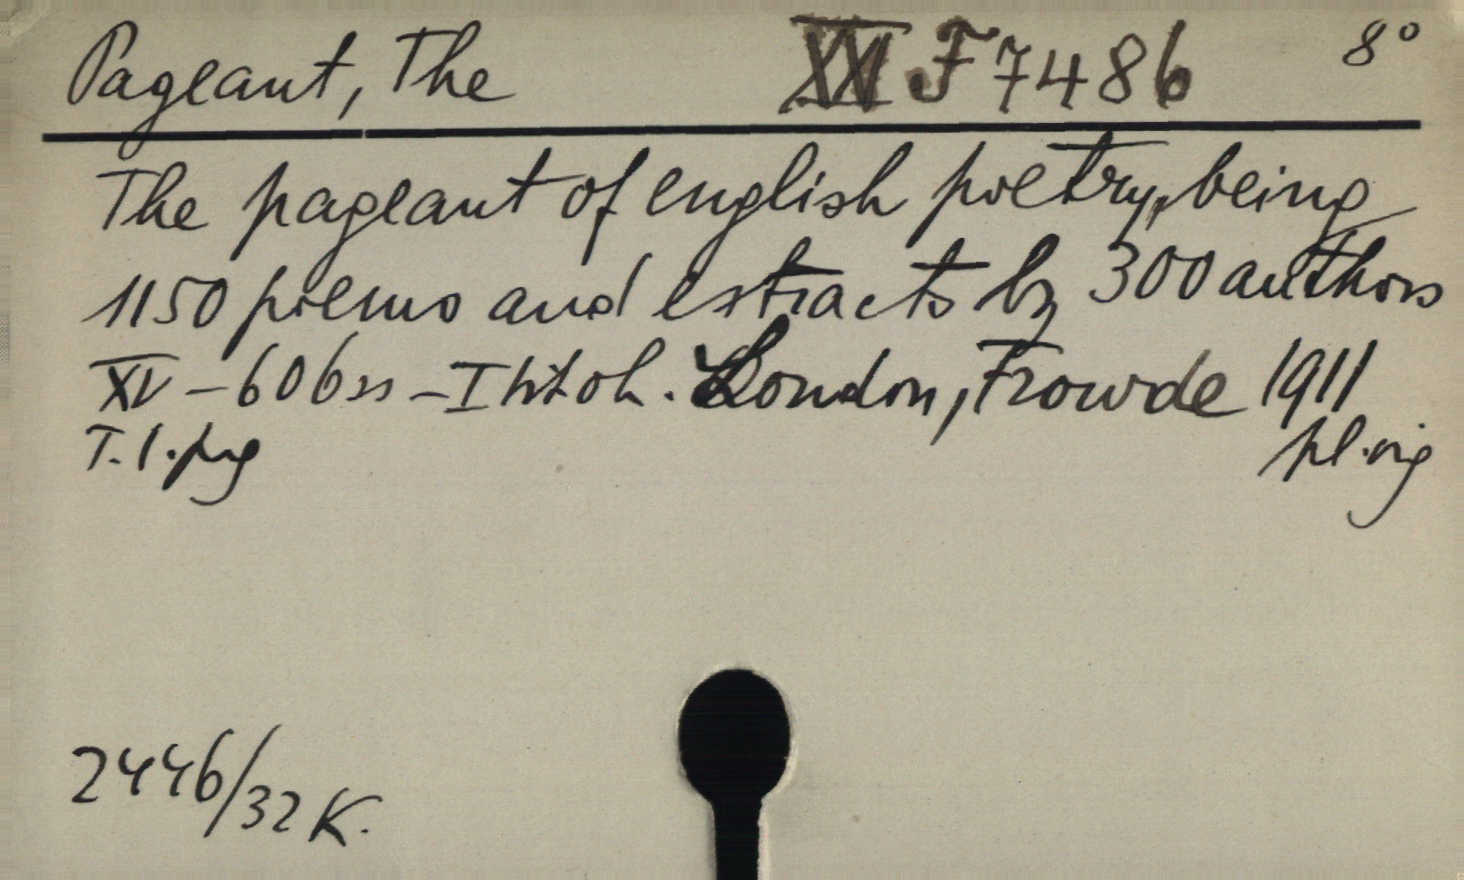 Pageant, The XVI F 7486 8°
The pageant of english poetry, being
1150 poems and extracts by 300 authors
XV – 606 ss – I htoh. London, Frowde 1911
T. l. prg pl. rig
2446/32 K.